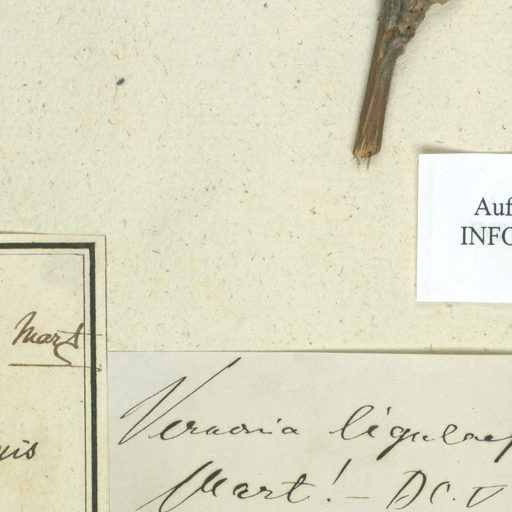 Auf
INFO
Mart
uis
Vernonia
Mart! - DC.